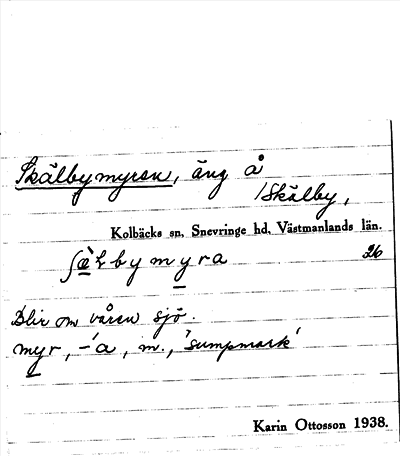 Skälbymyran, äng å
Skälby,
Kolbäcks sn, Snevringe hd, Västmanlands län.
ʃæ̀lbymyra 26
Blir om våren sjö.
myr, -'a, m., 'sumpmark'
Karin Ottosson 1938.